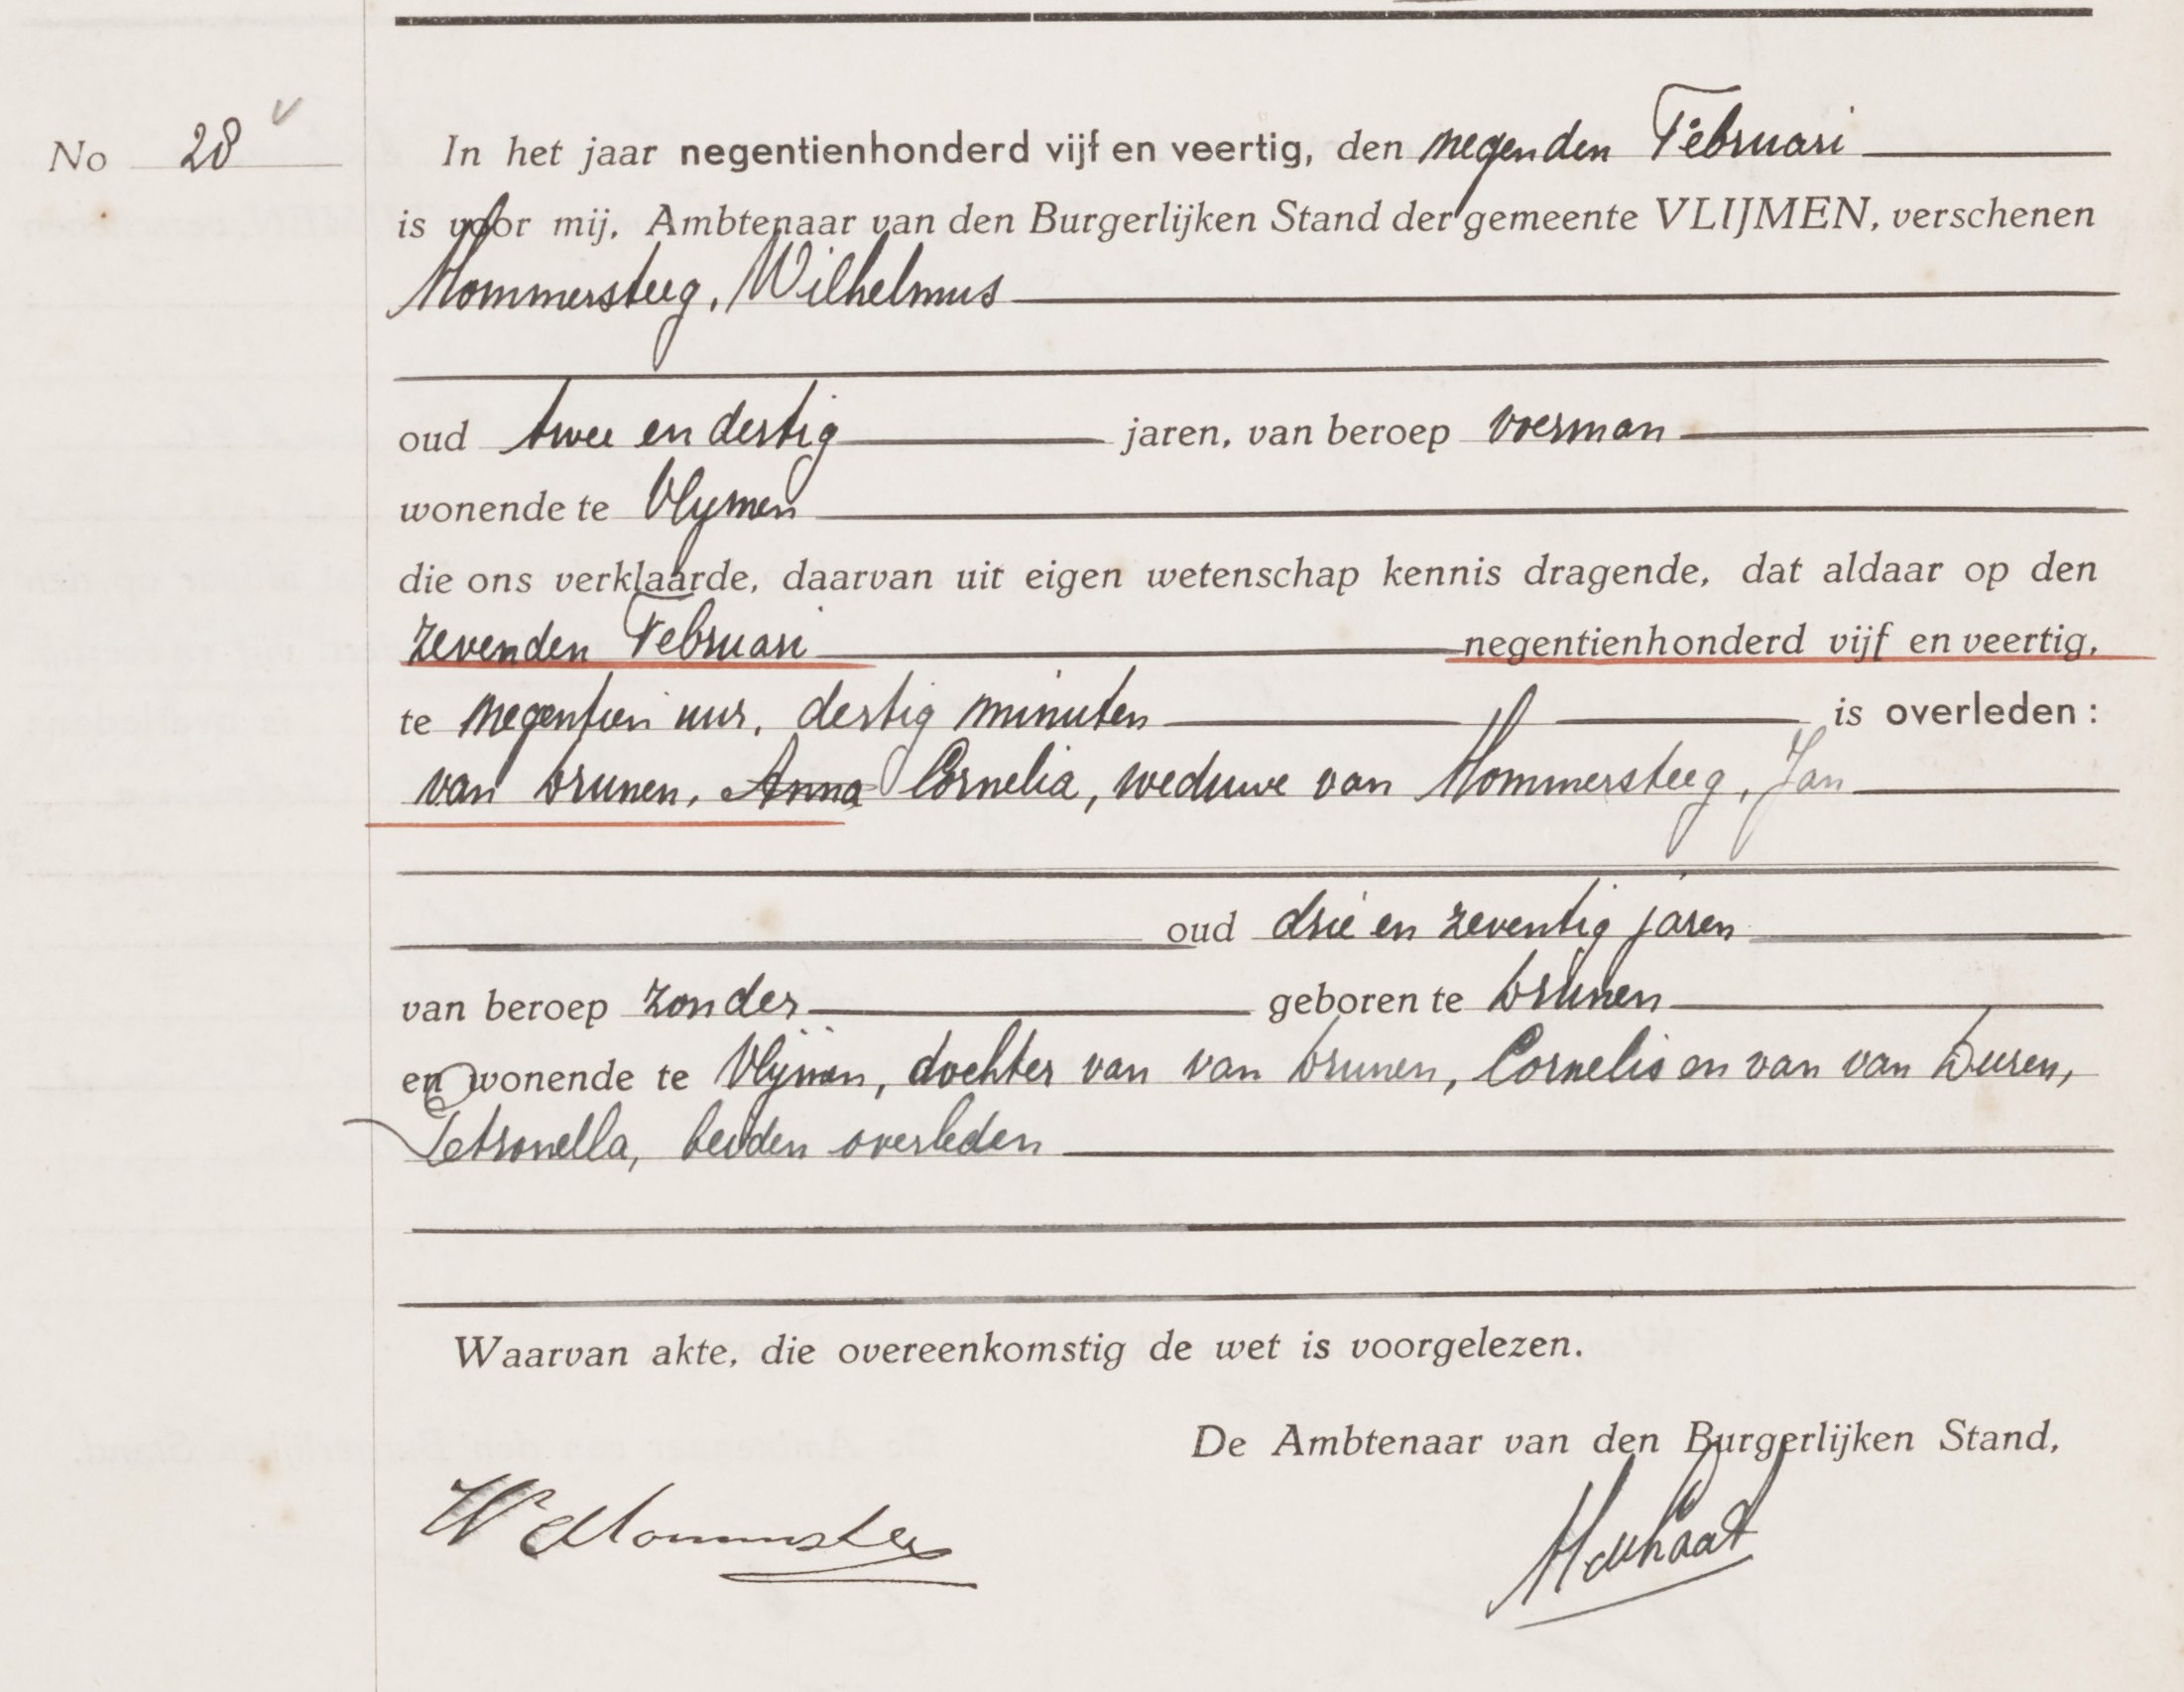 No 28
In het jaar negentienhonderd vijf en veertig, den negenden Februari
is voor mij, Ambtenaar van den Burgerlijken Stand der gemeente VLIJMEN, verschenen
Mommersteeg, Wilhelmus
oud twee en dertig jaren, van beroep voerman
wonende te Vlijmen
die ons verklaarde, daarvan uit eigen wetenschap kennis dragende, dat aldaar op den
zevenden Februari negentienhonderd vijf en veertig,
te negentien uur, dertig minuten is overleden:
van Drunen, Anna Cornelia, weduwe van Mommersteeg, Jan
oud drie en zeventig jaren
van beroep zonder geboren te Drunen
en wonende te Vlijmen, dochter van van Drunen, Cornelis en van van
Petronella, beiden overleden
Waarvan akte, die overeenkomstig de wet is voorgelezen.
De Ambtenaar van den Burgerlijken Stand,
W Mommersteeg